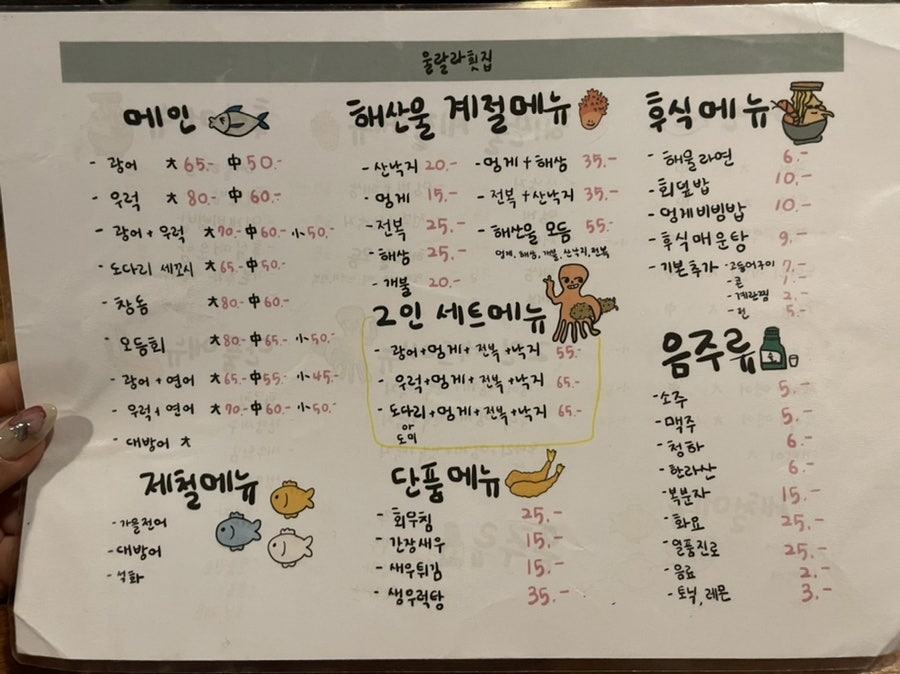 울랄라횟집
메인
- 광어 大 65.- 中 50.-
- 우럭 大 80.- 中 60.-
- 광어 + 우럭 大 70.- 中 60.- 小 50.-
- 도다리 세꼬시 大 65.- 中 50.-
- 참돔 大 80.- 中 60.-
- 모듬회 大 80.- 中 65.- 小 50.-
- 광어 + 연어 大 65.- 中 55.- 小 45.-
- 우럭 + 연어 大 70.- 中 60.- 小 50.-
- 대방어 大
제철메뉴
- 가을전어
- 대방어
- 석화
해산물 계절메뉴
- 산낙지 20.-
- 멍게 15.-
- 전복 25.-
- 해삼 25.-
- 개불 20.-
- 멍게 + 해삼 35.-
- 전복 + 산낙지 35.-
- 해산물 모듬 55.-
멍게, 해삼, 개불, 산낙지, 전복
2인 세트메뉴
- 광어+멍게+전복+낙지 55.-
- 우럭+멍게+전복+낙지 65.-
- 도다리+멍게+전복+낙지 65.-
or
도미
단품메뉴
- 회무침 25.-
- 간장새우 15.-
- 새우튀김 15.-
- 생우럭탕 35.-
후식메뉴
- 해물라면 6.-
- 회덮밥 10.-
- 멍게비빔밥 10.-
- 후식매운탕 9.-
- 기본추가 - 고등어구이 7.-
- 콘 1.-
- 계란찜 2.-
- 전 5.-
음주류
- 소주 5.-
- 맥주 5.-
- 청하 6.-
- 한라산 6.-
- 복분자 15.-
- 화요 25.-
- 일품진로 25.-
- 음료 2.-
- 토닉, 레몬 3.-